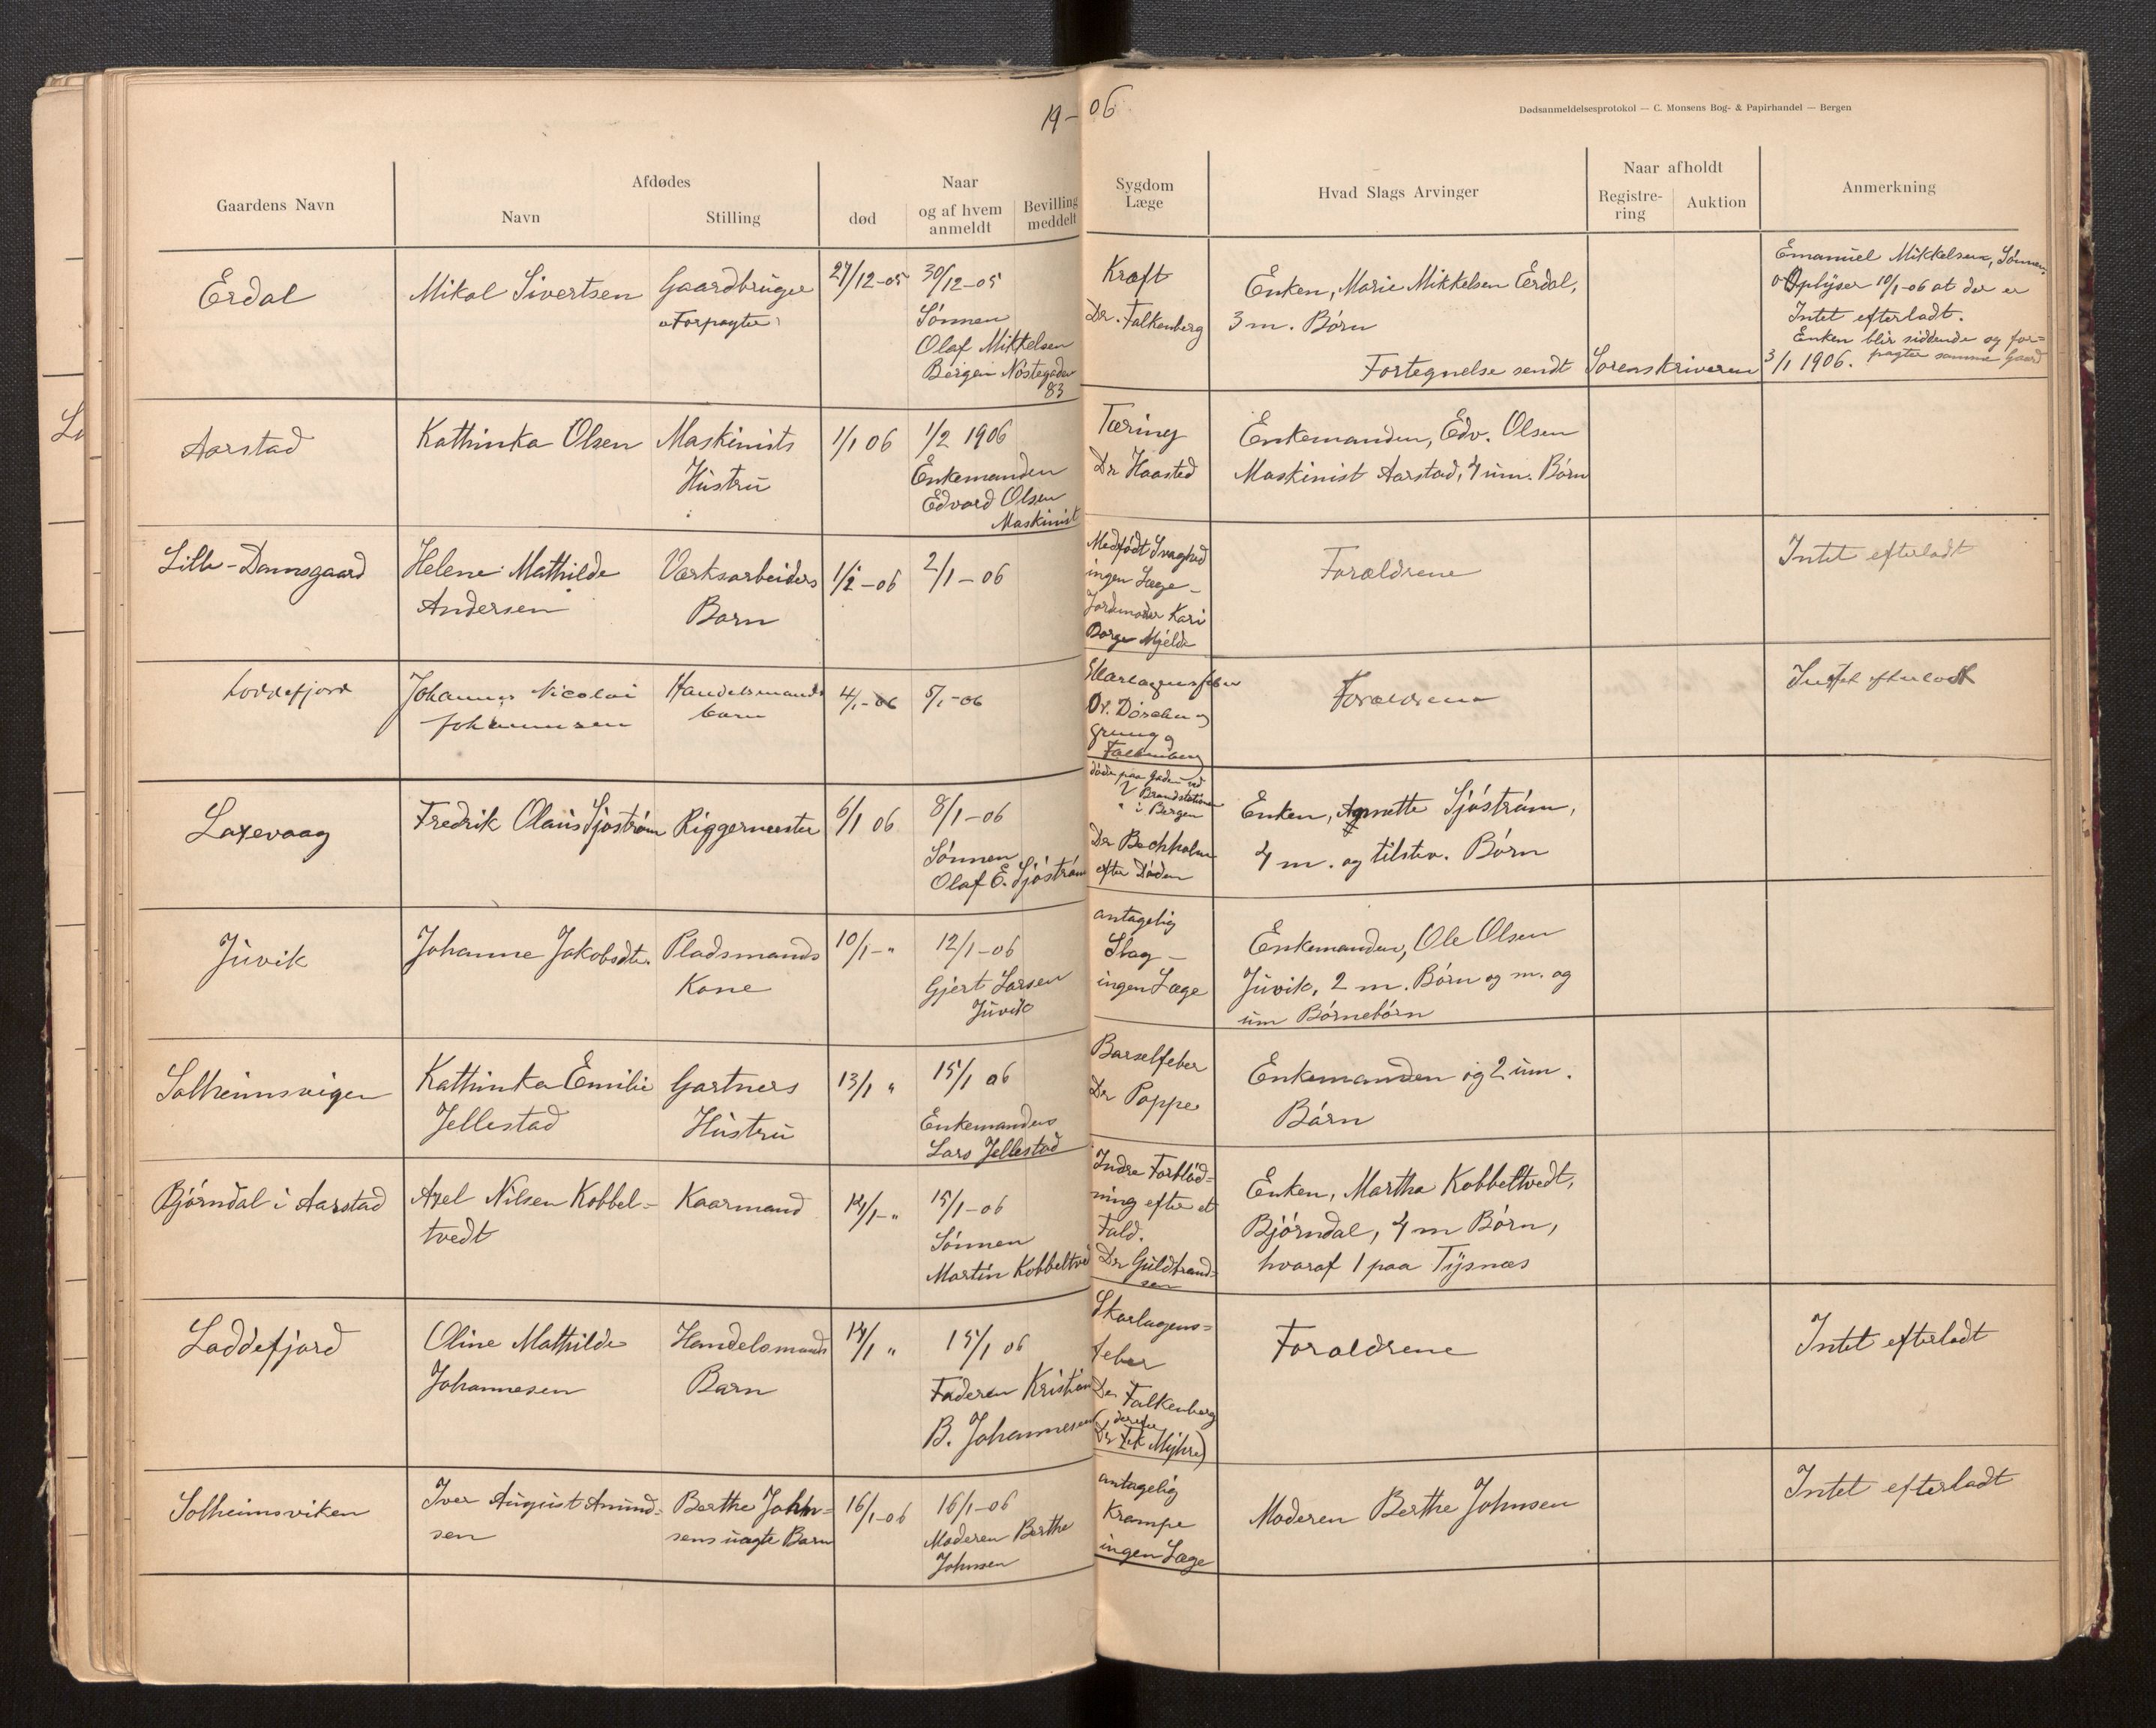 19-06
Dødsanmeldelsesprotokol — C. Monsens Bog- & Papirhandel — Bergen
Gaardens Navn
Afdødes
Navn
Stilling
død
Naar
og af hvem
anmeldt
Bevilling
meddelt
Sygdom
Læge
Hvad Slags Arvinger
Naar afholdt
Registre-
ring
Auktion
Anmerkning
Erdal
Mikal Sivertsen
Gaardbruger
Forpagter
27/12-05
30/12-05
Sønnen
Olaf Mikkelsen
Bergen Nøstegaden
83
Kræft
Dr. Falkenberg
Enken, Marie Mikkelsen Erdal,
3 m. Børn
Fortegnelse sendt Sorenskriveren 3/1 1906.
Emanuel Mikkelsen, Sønnen,
Oplyser 10/1-06 at der er
Intet efterladt.
Enken blir siddende og for-
pagter samme Gaard
Aarstad
Kathinka Olsen
Maskinists
Hustru
1/1 06
1/2 1906
Enkemanden
Edvard Olsen
Maskinist
Tæring
Dr Haasted
Enkemanden, Edv. Olsen
Maskinist Aarstad, 4 um. Børn
Lille-Damsgaard
Helene Mathilde
Andersen
Værksarbeiders
Barn
1/2-06
2/1-06
Medfødt Svaghed
ingen Læge-
Jordmoder Kari
Borge Mjelde
Forældrene
Intet efterladt
Loddefjord
Johannes Nicolai
Johannesen
Handelsmands
barn
4/1-06
5/1-06
Skarlagensfeber
Dr.
Falkenberg
Forældrene
Intet efterladt
Laxevaag
Fredrik Olaus Sjøstrøm
Riggermester
6/1 06
8/1-06
Sønnen
Olaf E. Sjøstrøm
døde paa Gaden ved
Brandstationen
i Bergen
Dr Bochholm
efter Døden
Enken, Agnette Sjøstrøm,
4 m. og tilstev. Børn
Juvik
Johanne Jakobsdtr.
Pladsmands
Kone
10/1-"
12/1-06
Gjert Larsen
Juvik
antagelig
Slag-
ingen Læge
Enkemanden, Ole Olsen
Juvik, 2 m. Børn og m. og
um Børnebørn
Solheimsvigen
Kathinka Emilie
Jellestad
Gartners
Hustru
13/1 "
15/1 06
Enkemanden
Lars Jellestad
Barselfeber
Dr Poppe
Enkemanden og 2 um.
Børn
Bjørndal i Aarstad
Axel Nilsen Kobbel-
tvedt
Kaarmand
14/1-"
15/1-06
Sønnen
Martin Kobbeltvedt
Indre Forblød-
ning efter et
Fald.
Dr Guldbrand-
sen
Enken, Martha Kobbeltvedt,
Bjørndal, 4 m Børn,
hvoraf 1 paa Tysnæs
Loddefjord
Oline Mathilde
Johannesen
Handelsmands
Barn
14/1 "
15/1 06
Faderen Kristian
B. Johannesen
Skarlagens-
feber
Dr Falkenberg
(derefter
Dr Myhre)
Forældrene
Intet efterladt
Solheimsviken
Iver August Amund-
sen
Berthe John-
sens uægte Barn
16/1-06
16/1-06
Moderen Berthe
Johnsen
antagelig
Krampe
ingen Læge
Moderen Berthe Johnsen
Intet efterladt